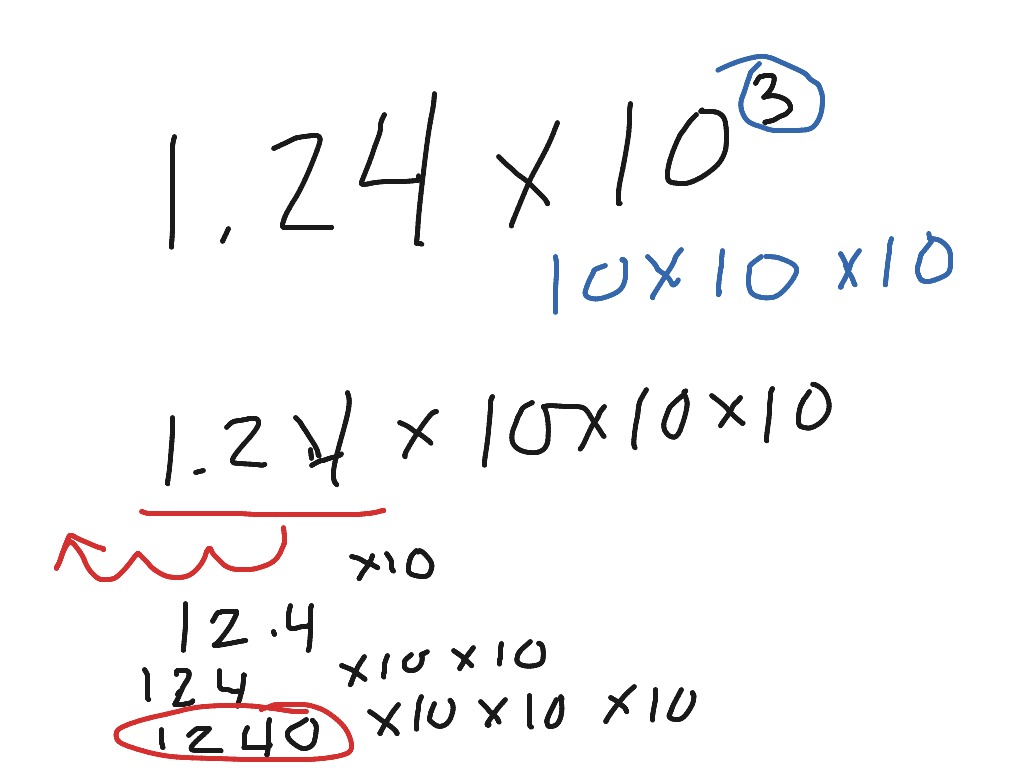 1.24 × 10³
10 × 10 × 10
1.24 × 10 × 10 × 10
×10
12.4
124 ×10 × 10
1240 ×10 × 10 × 10